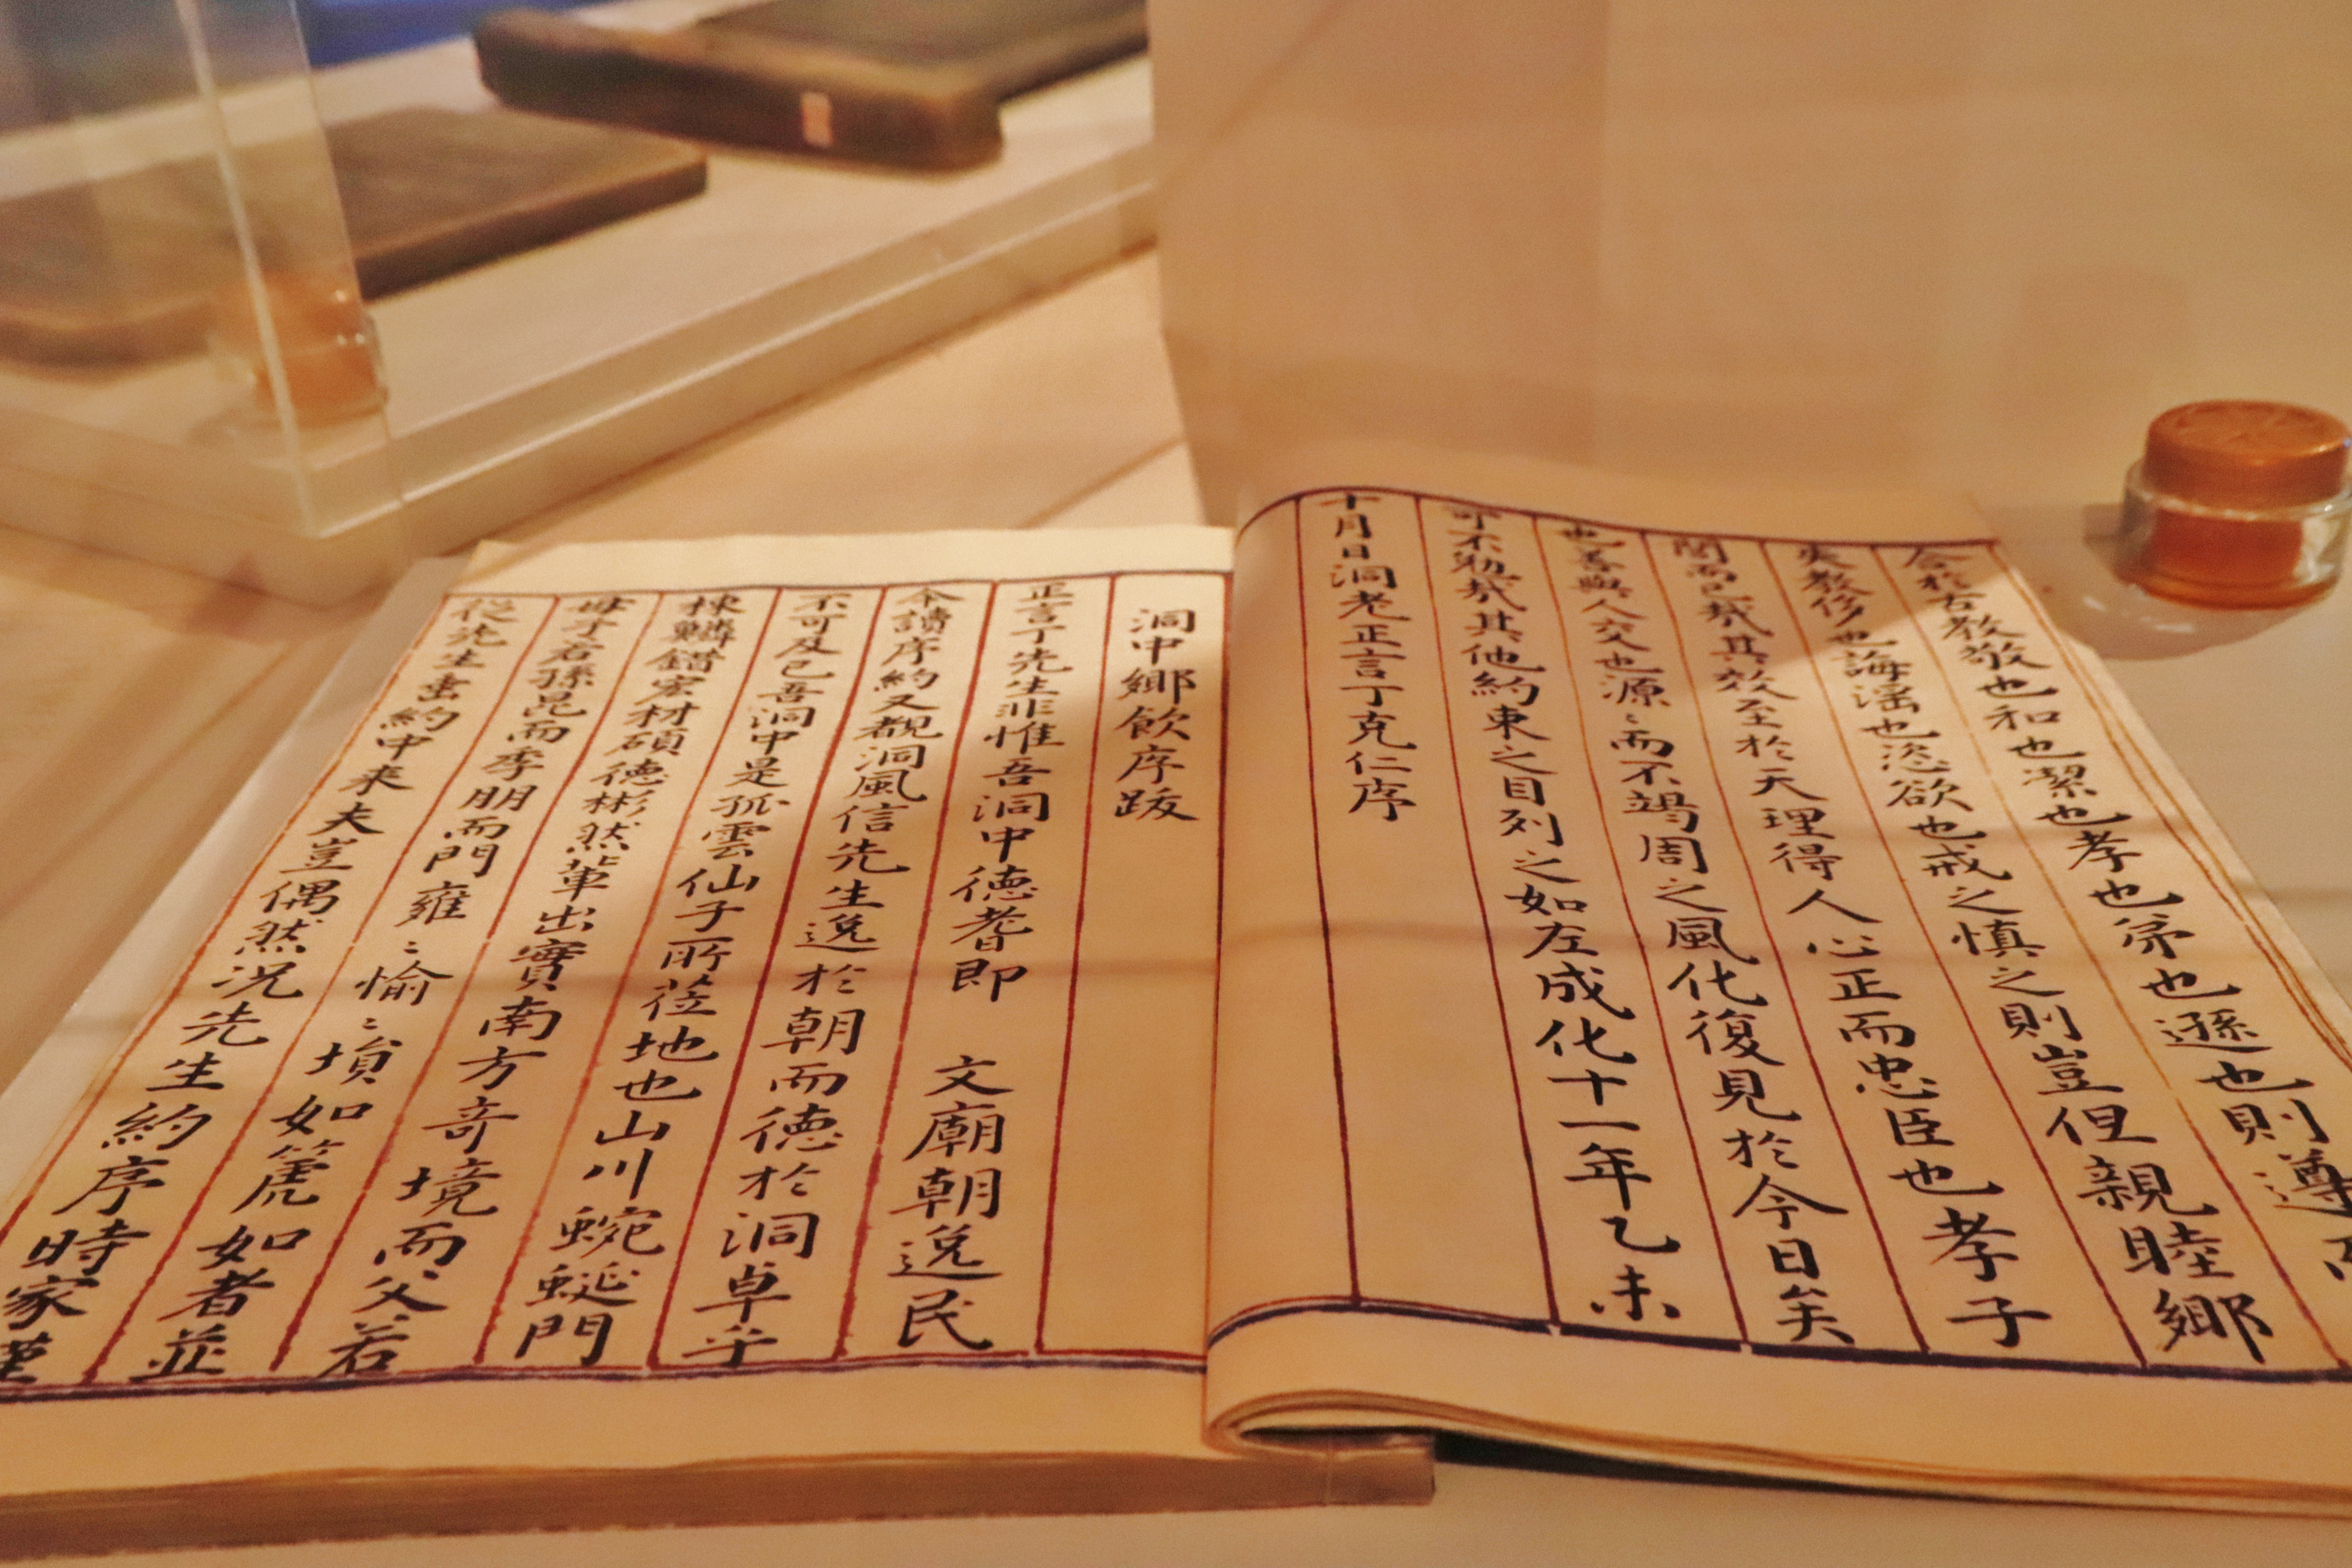 合於古教敬也和也潔也孝也弟也遜也則遵而
失教侈也誨淫也恣欲也戒之慎之則豈但親睦鄉
閭而已哉其效至於天理得人心正而忠臣也孝子
也善與人交也源〻而不竭周之風化復見於今日矣
可不勑哉其他約束之目列之如左成化十一年乙未
十月日洞老正言丁克仁序
洞中鄉飲序跋
正言丁先生非惟吾洞中德耆即 文廟朝逸民
今讀序約又覩洞風信先生逸於朝而德於洞卓乎
不可及已吾洞中是孤雲仙子所莅地也山川蜿蜒門
棟鱗錯宏材碩德彬然輩出實南方奇境而父若
母子若孫昆而季朋而門雍〻愉〻塤如篪如者並
從先生垂約中來夫豈偶然況先生約序時家